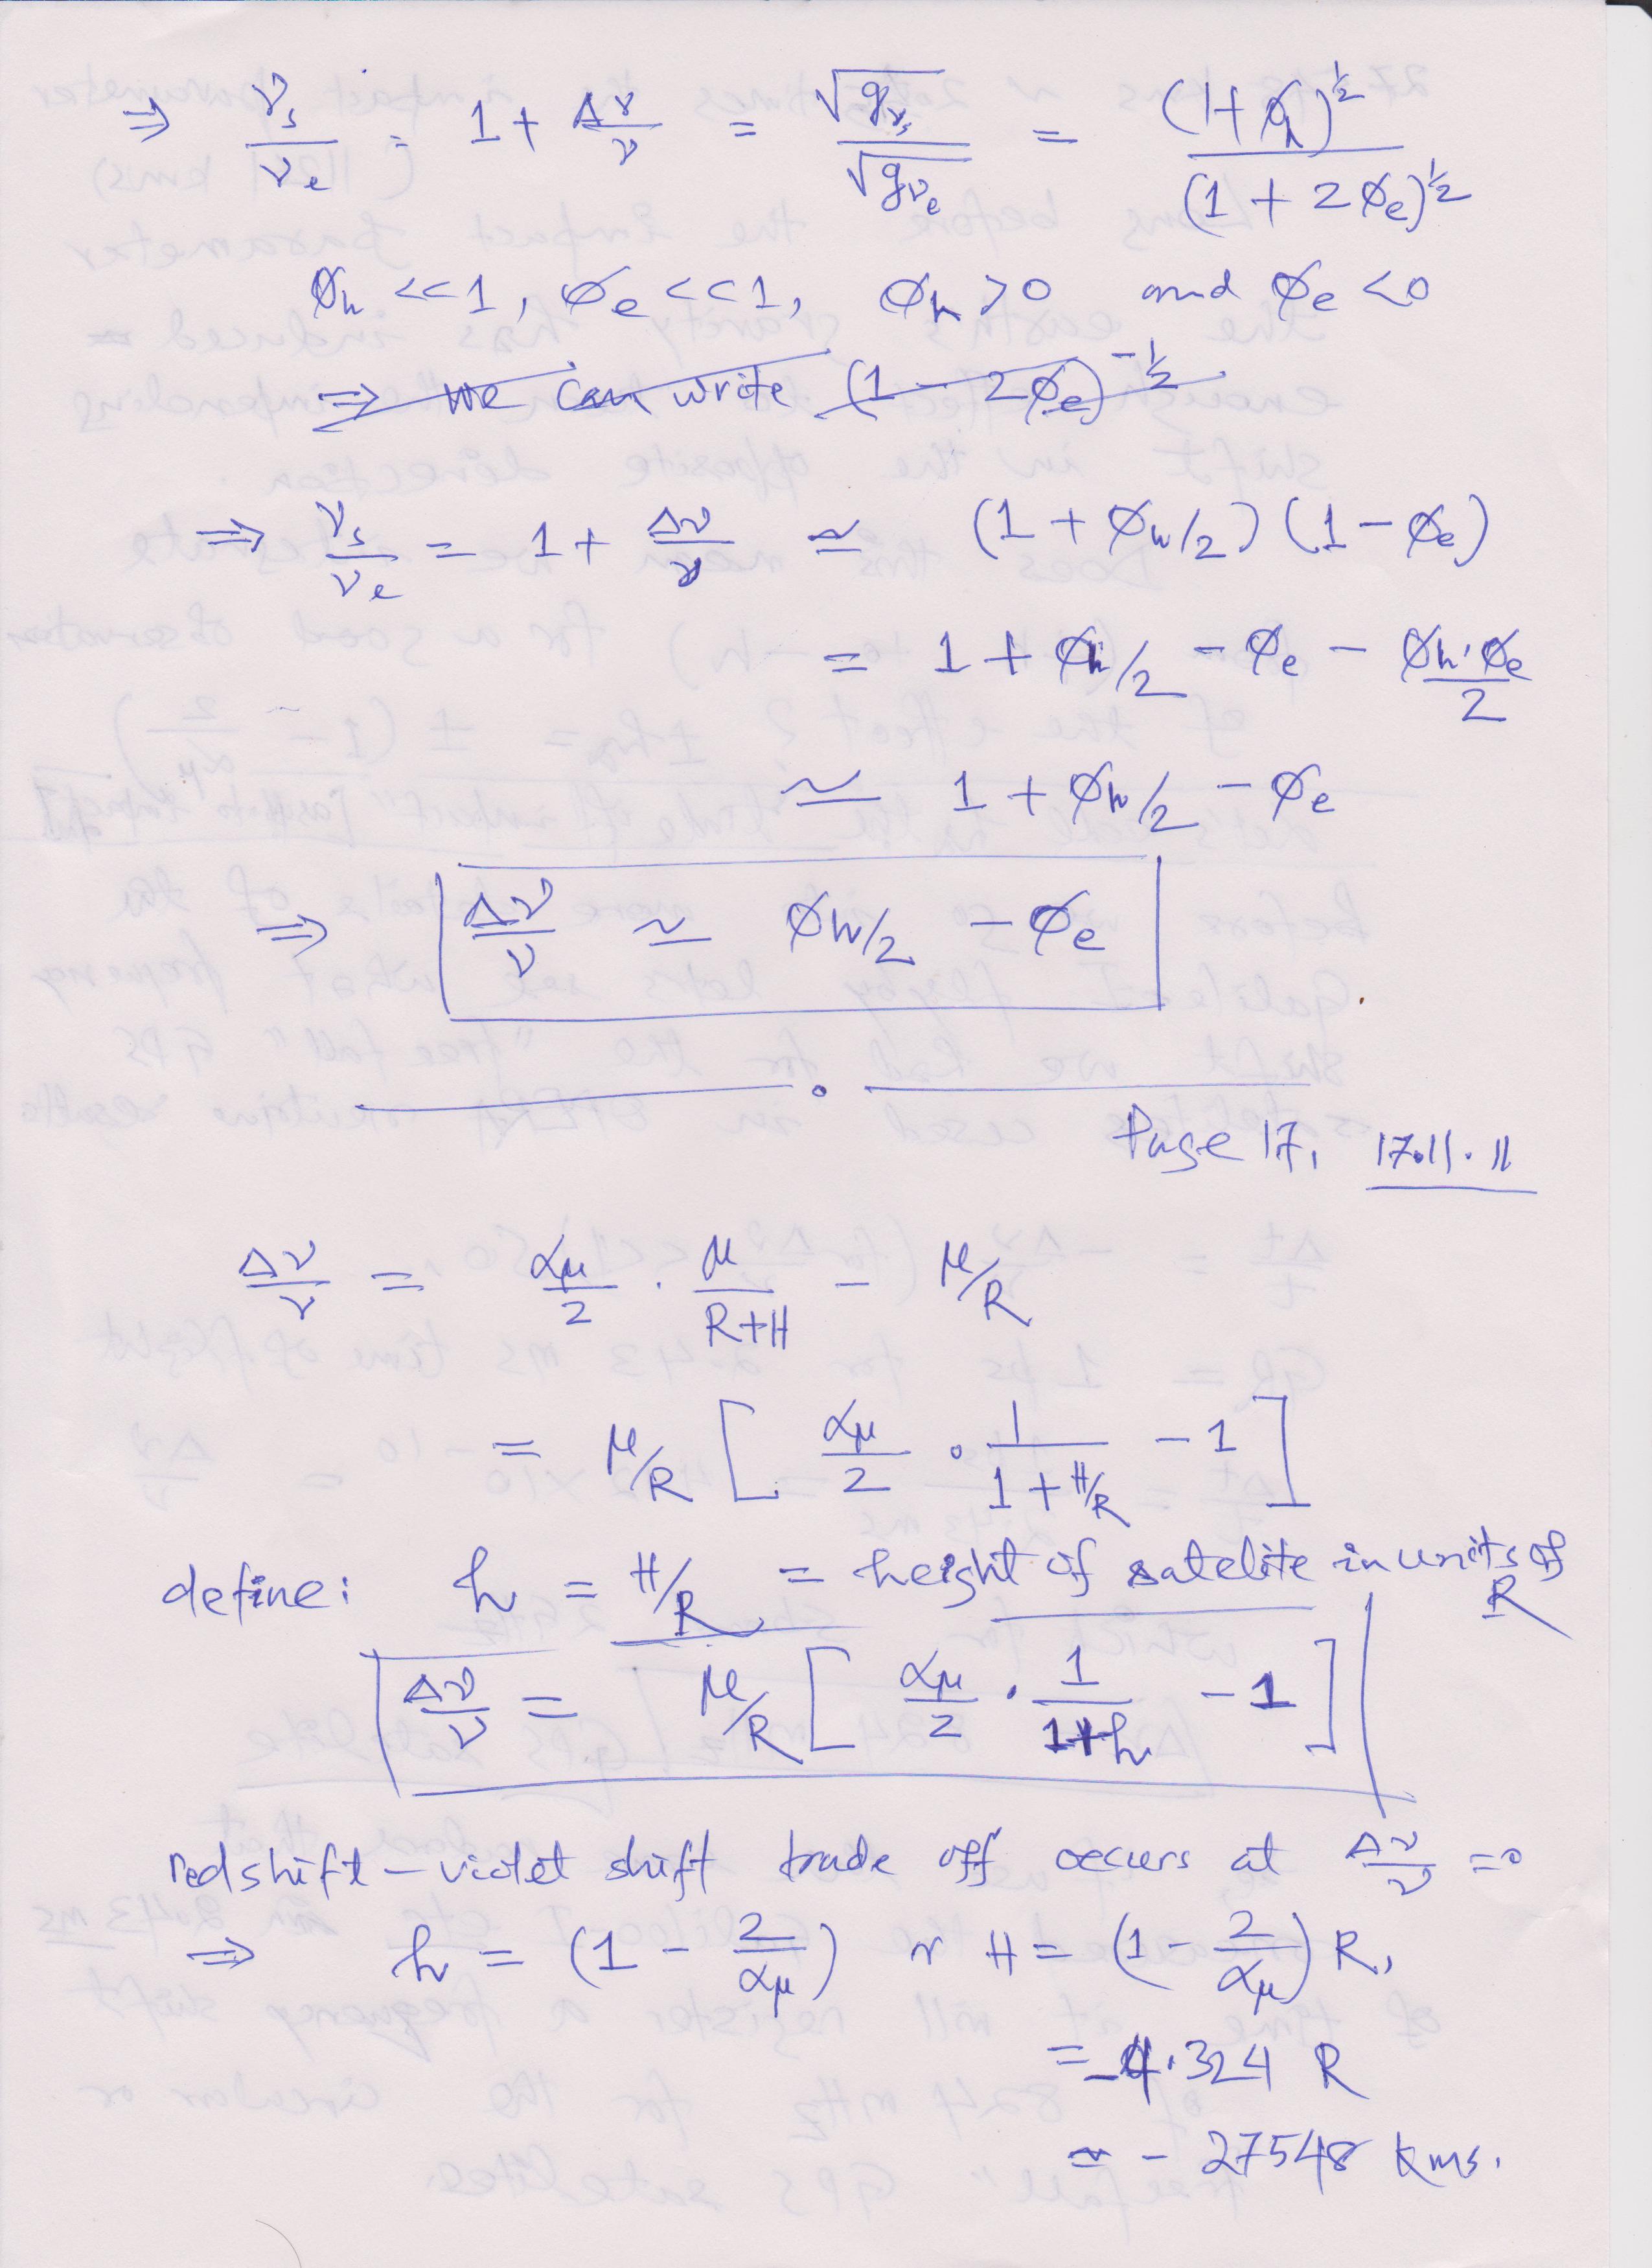 ⇒ νs/νe = 1 + Δν/ν = √gνs/√gνe = (1+φh)^½/(1 + 2φe)^½
φh <<1, φe <<1, φh >0 and φe <0
⇒ we can write (1 - 2φe)^-½
⇒ νs/νe = 1 + Δν/ν ≃ (1 + φh/2) (1 - φe)
= 1 + φh/2 - φe - φh·φe/2
≃ 1 + φh/2 - φe
⇒ Δν/ν ≃ φh/2 - φe
Page 17, 17.11.11
Δν/ν = αμ/2 . μ/R+H - μ/R
= μ/R [ αμ/2 . 1/1+H/R - 1 ]
define: h = H/R = height of satelite in units of R
Δν/ν = μ/R [ αμ/2 . 1/1+h - 1 ]
redshift - violet shift trade off occurs at Δν/ν =0
⇒ h = (1 - 2/αμ) or H = (1 - 2/αμ) R,
= -4.324 R
≃ - 27548 kms.